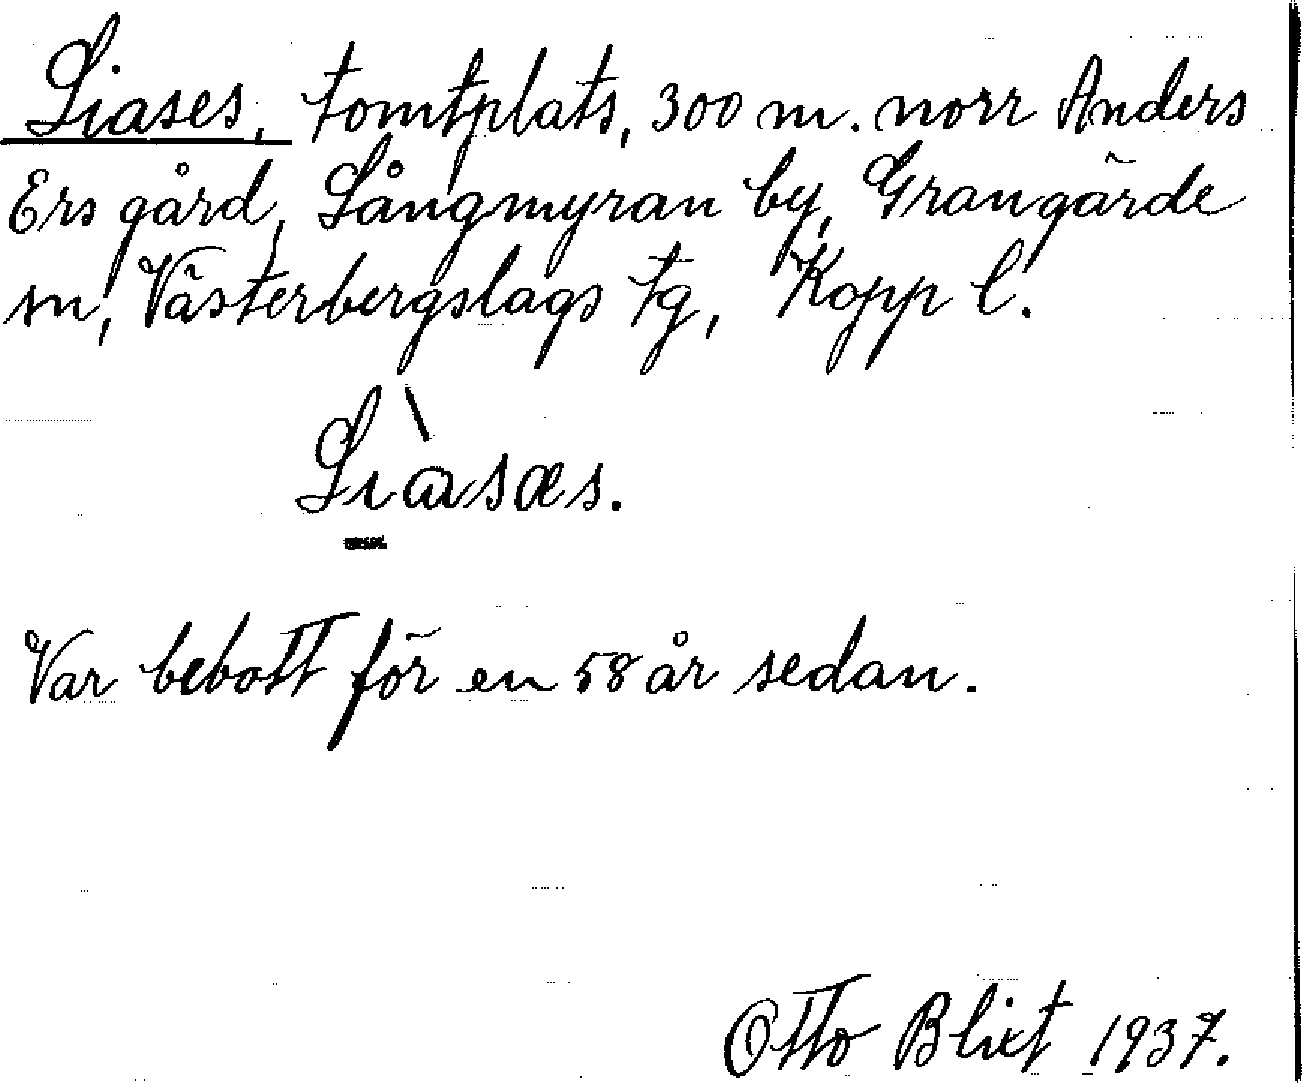 Liases, tomtplats, 300 m. norr Anders
Ers gård, Långmyran by, Grangärde
sn, Västerbergslags tg, Kopp l.
Lìɑsæs.
Var bebott för en 58 år sedan.
Otto Blixt 1937.